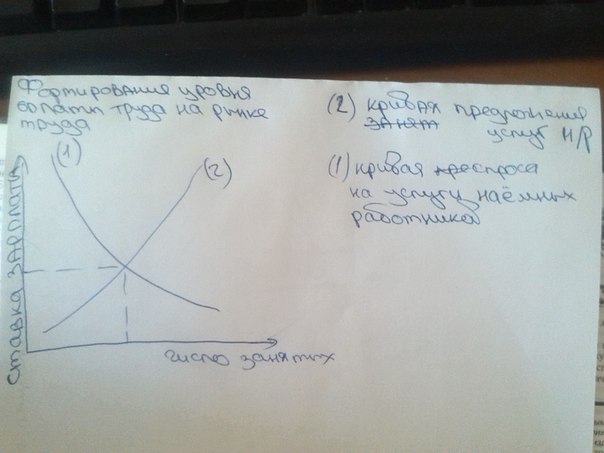 Формирование уровня
оплаты труда на рынке
труда
(1)
(2)
ставка зарплаты
число занятых
(2) кривая предложения
занят услуг н/р
(1) кривая спроса
на услугу наёмных
работника